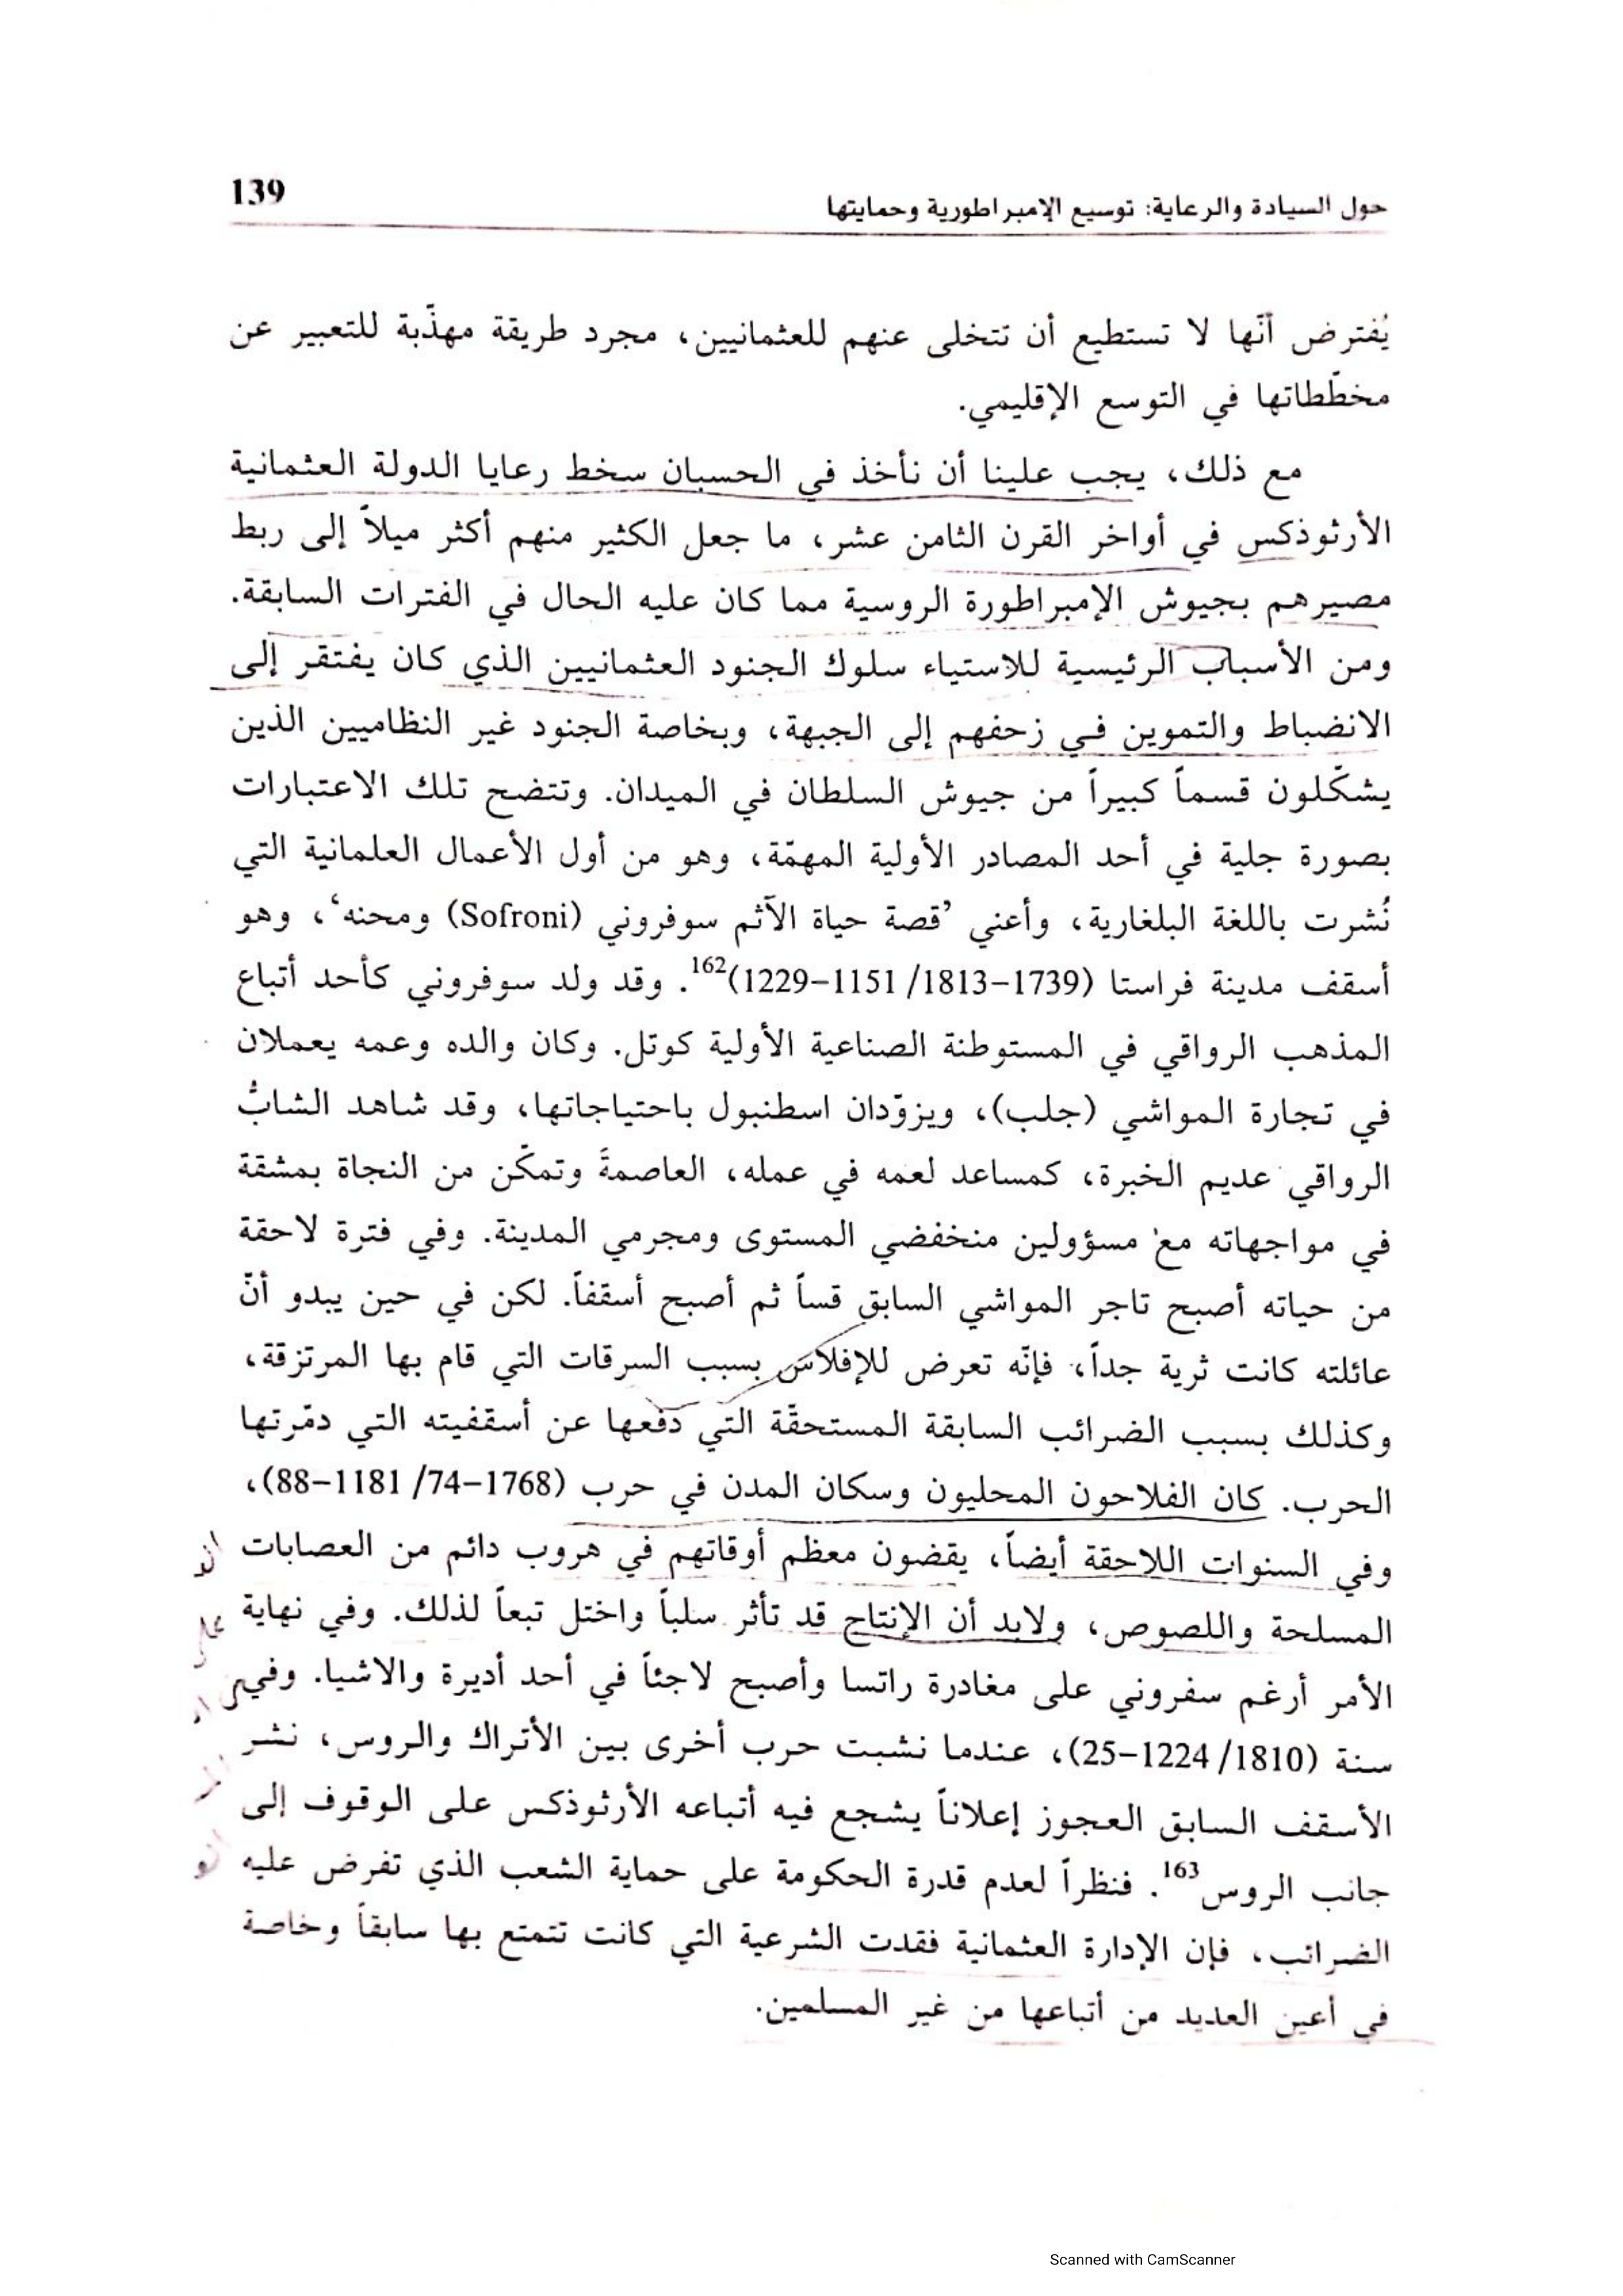 139
حول السيادة والرعاية: توسيع الإمبراطورية وحمايتها
يُفترض أنّها لا تستطيع أن تتخلى عنهم للعثمانيين، مجرد طريقة مهذّبة للتعبير عن
مخطّطاتها في التوسع الإقليمي.
مع ذلك، يجب علينا أن نأخذ في الحسبان سخط رعايا الدولة العثمانية
الأرثوذكس في أواخر القرن الثامن عشر، ما جعل الكثير منهم أكثر ميلاً إلى ربط
مصيرهم بجيوش الإمبراطورة الروسية مما كان عليه الحال في الفترات السابقة.
ومن الأسباب الرئيسية للاستياء سلوك الجنود العثمانيين الذي كان يفتقر إلى
الانضباط والتموين في زحفهم إلى الجبهة، وبخاصة الجنود غير النظاميين الذين
يشكّلون قسماً كبيراً من جيوش السلطان في الميدان. وتتضح تلك الاعتبارات
بصورة جلية في أحد المصادر الأولية المهمّة، وهو من أول الأعمال العلمانية التي
نُشرت باللغة البلغارية، وأعني ’قصة حياة الآثم سوفروني (Sofroni) ومحنه‘، وهو
أسقف مدينة فراستا (1739–1813/ 1151–1229)162. وقد ولد سوفروني كأحد أتباع
المذهب الرواقي في المستوطنة الصناعية الأولية كوتل. وكان والده وعمه يعملان
في تجارة المواشي (جلب)، ويزوّدان اسطنبول باحتياجاتها، وقد شاهد الشابُّ
الرواقي عديم الخبرة، كمساعد لعمه في عمله، العاصمةَ وتمكّن من النجاة بمشقة
في مواجهاته مع مسؤولين منخفضي المستوى ومجرمي المدينة. وفي فترة لاحقة
من حياته أصبح تاجر المواشي السابق قساً ثم أصبح أسقفاً. لكن في حين يبدو أنّ
عائلته كانت ثرية جداً، فإنّه تعرض للإفلاس بسبب السرقات التي قام بها المرتزقة،
وكذلك بسبب الضرائب السابقة المستحقّة التي دفعها عن أسقفيته التي دمّرتها
الحرب. كان الفلاحون المحليون وسكان المدن في حرب (1768–74/ 1181–88)،
وفي السنوات اللاحقة أيضاً، يقضون معظم أوقاتهم في هروب دائم من العصابات
المسلحة واللصوص، ولابد أن الإنتاج قد تأثر سلباً واختل تبعاً لذلك. وفي نهاية
الأمر أرغم سفروني على مغادرة راتسا وأصبح لاجئاً في أحد أديرة والاشيا. وفي
سنة (1810/ 1224–25)، عندما نشبت حرب أخرى بين الأتراك والروس، نشر
الأسقف السابق العجوز إعلاناً يشجع فيه أتباعه الأرثوذكس على الوقوف إلى
جانب الروس163. فنظراً لعدم قدرة الحكومة على حماية الشعب الذي تفرض عليه
الضرائب، فإن الإدارة العثمانية فقدت الشرعية التي كانت تتمتع بها سابقاً وخاصة
في أعين العديد من أتباعها من غير المسلمين.
Scanned with CamScanner